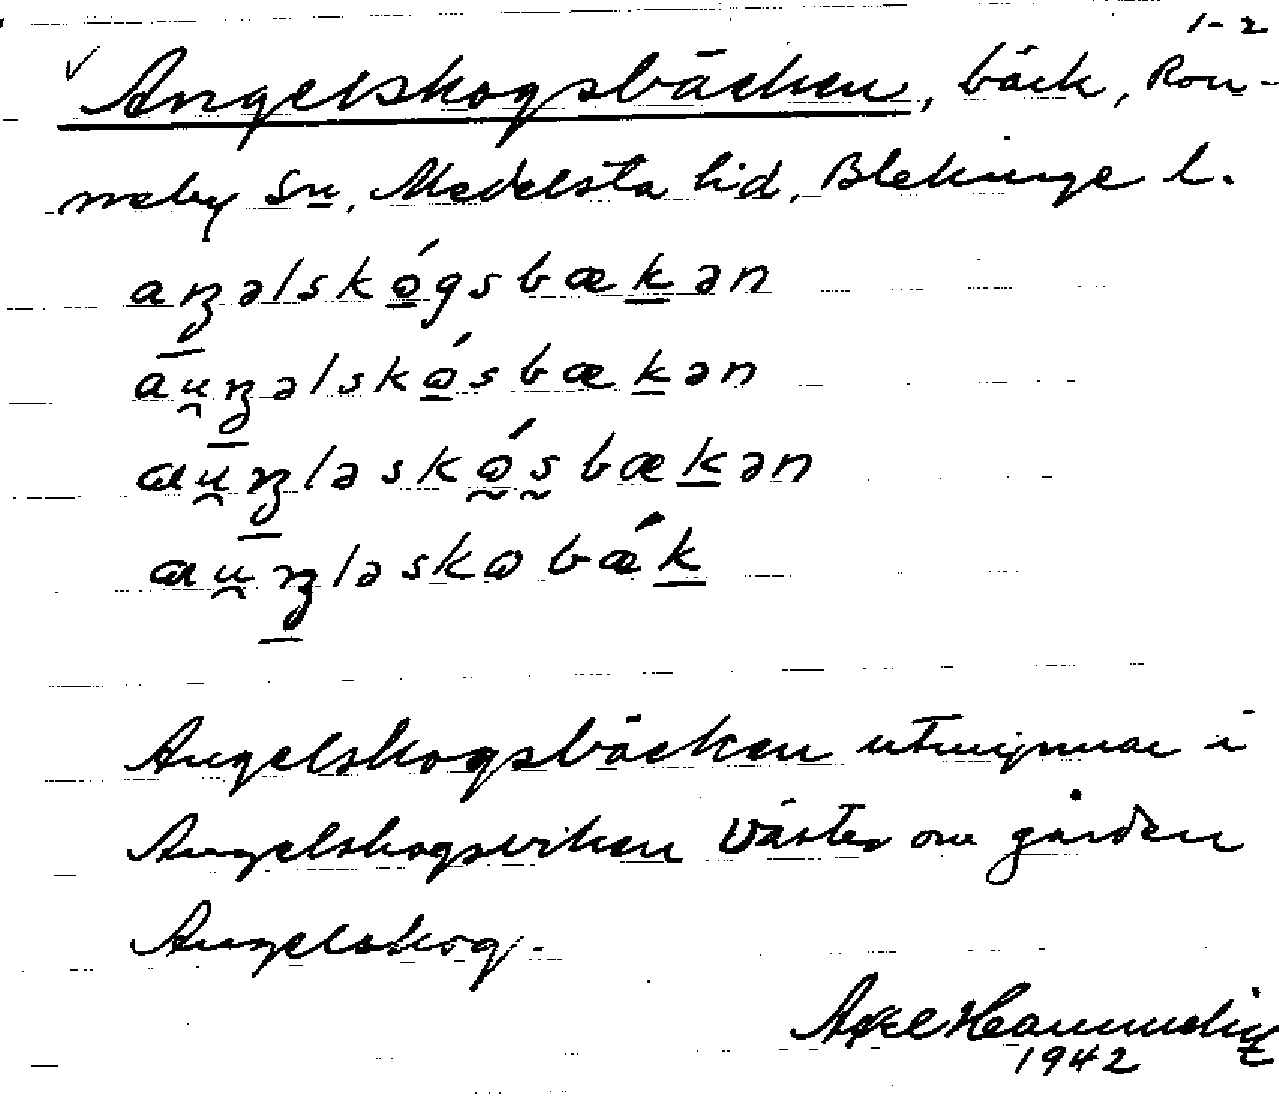 1-2
Angelskogsbäcken, bäck, Ron-
neby Sn, Medelsta hd, Blekinge l.
aŋəlskǿgsbækən
au̯ŋəlskǿsbækən
ɑu̯ŋləskǿsbækən
ɑu̯ŋləskobǽk
Angelskogsbäcken utmynnar i
Angelskogsviken Väster om gården
Angelskog.
Axel
1942